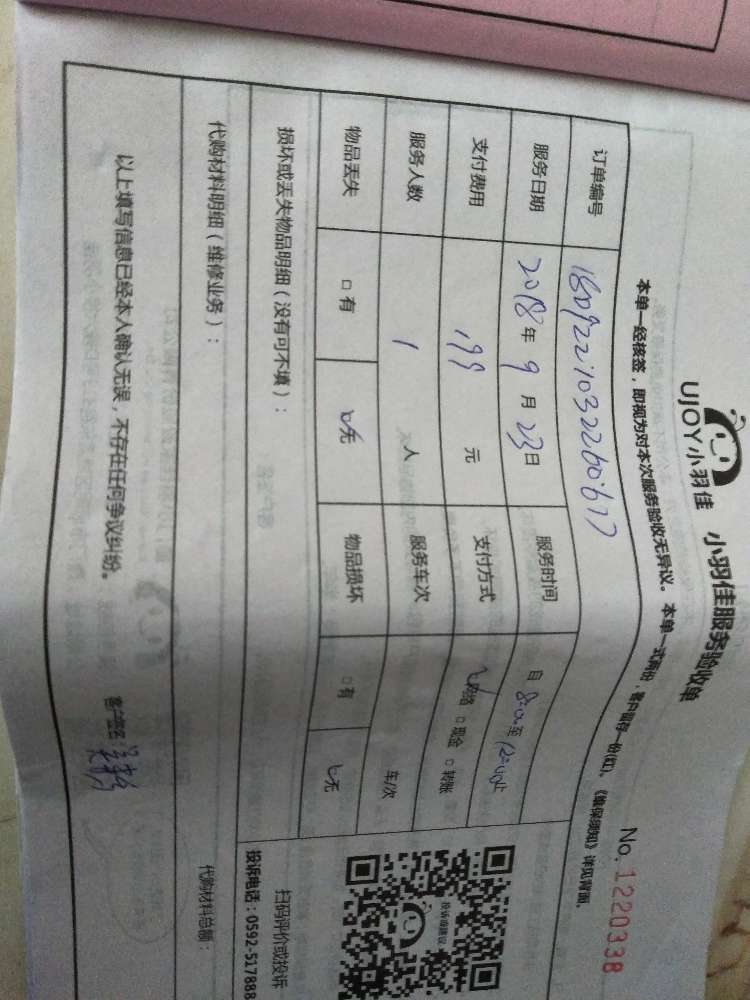 UJOY小羽佳 小羽佳服务验收单 No. 1220338
本单一经核签，即视为对本次服务验收无异议。本单一式两份，客户留存一份(红)，《维保须知》详见背面。
订单编号
服务日期 2018年 9 月 23 日 服务时间 自 8:00 至 12:00止
支付费用 199 元 支付方式 网络 □ 现金 □ 转账
服务人数 1 人 服务车次 车/次
物品丢失 □ 有 无 物品损坏 □ 有 无
损坏或丢失物品明细（没有可不填）：
投诉或建议
扫码评价或投诉
投诉电话：0592-517888
代购材料明细（维修业务）： 代购材料总额：
以上填写信息已经本人确认无误，不存在任何争议纠纷。 客户签名